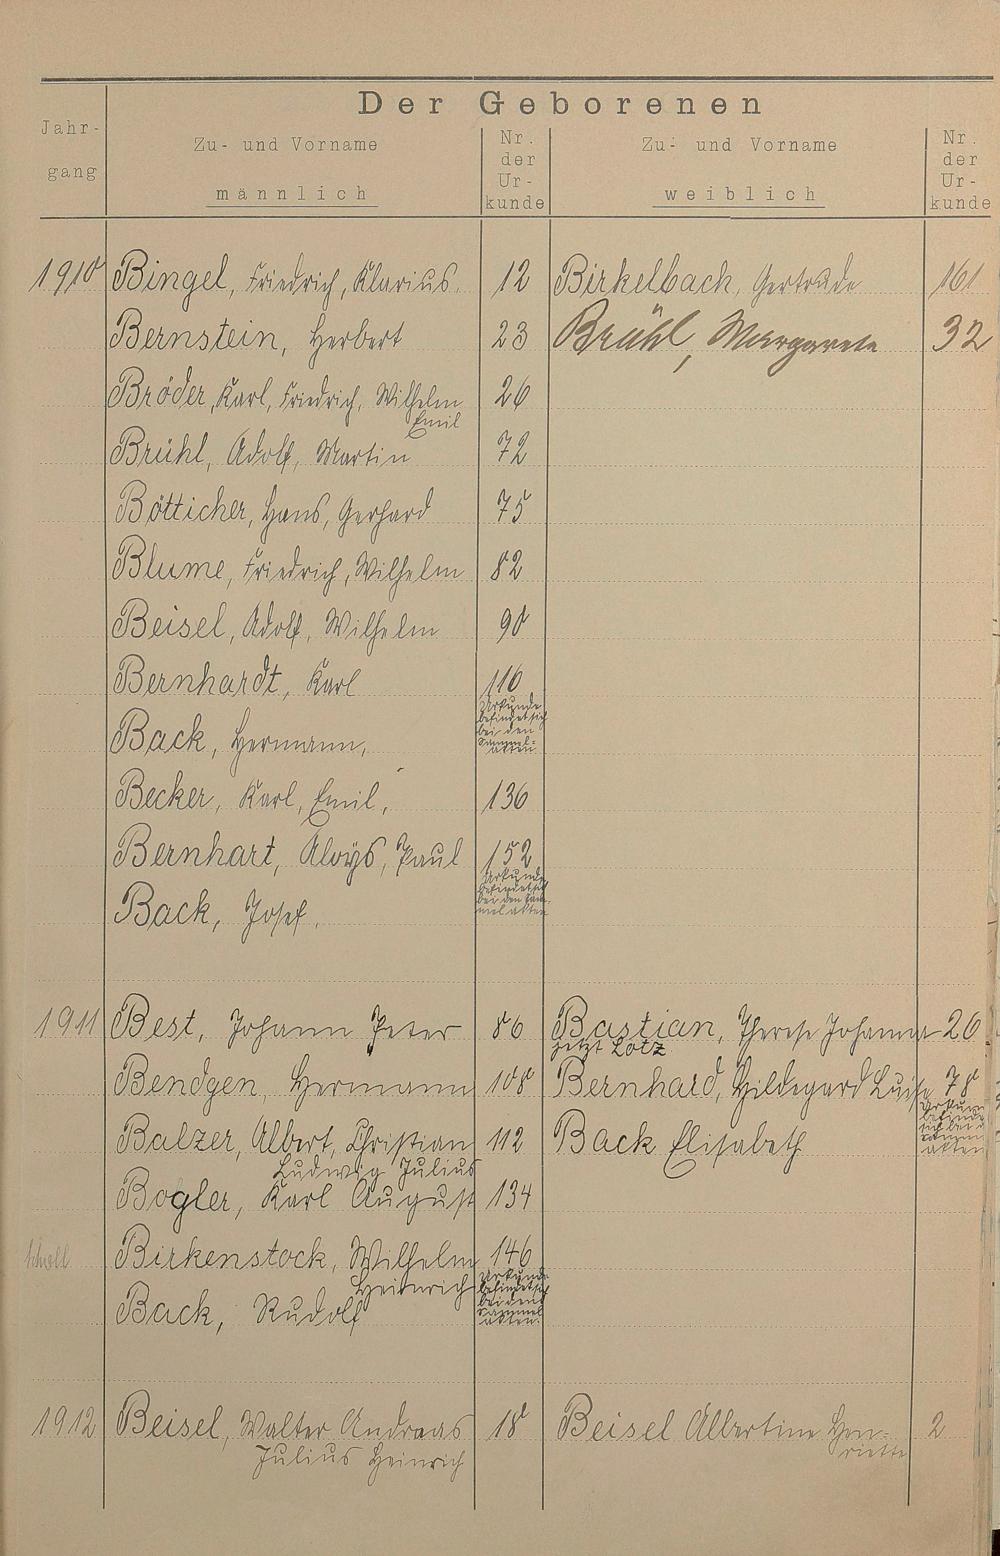 Der Geborenen
Jahr-
gang
Zu- und Vorname
männlich
Nr.
der
Ur-
kunde
Zu- und Vorname
weiblich
Nr.
der
Ur-
kunde
1910 Bingel, Friedrich, Klarius. 12 Birkelbach, Gertrude 161
Bernstein, Herbert 23 Brühl, Margarete 32
Bröder, Karl, Friedrich, Wilhelm 26
Emil
Brühl, Adolf, Martin 72
Bötticher, Hans, Gerhard 75
Blume, Friedrich, Wilhelm 82
Beisel, Adolf, Wilhelm 90
Bernhardt, Karl 116
Back, Hermann,
Urkunde
befindet sich
bei den
Sammel-
akten
Becker, Karl, Emil, 136
Bernhart, Aloys, Paul 152
Back, Josef.
Urkunde
befindet sich
bei den Sam-
melakten
1911 Best, Johann Peter 86 Bastian, Therese Johanna 26
jetzt Lotz
Bendgen, Hermann 108 Bernhard, Hildegard Luise 78
Balzer, Albert, Christian 112 Back Elisabeth
Ludwig Julius
akten
Bogler, Karl August 134
Birkenstock, Wilhelm 146
Heinrich
Back, Rudolf
Urkunde
befindet sich
bei den
Sammel
akten.
1912 Beisel, Walter Andreas 18 Beisel Albertine Hen- 2
Julius Heinrich riette